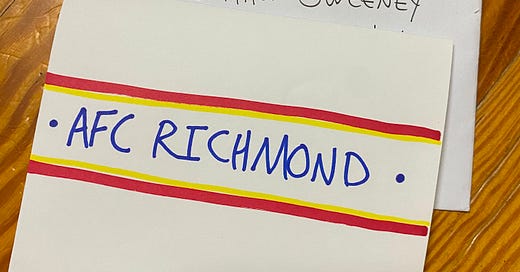 SWEENEY
· AFC RICHMOND ·